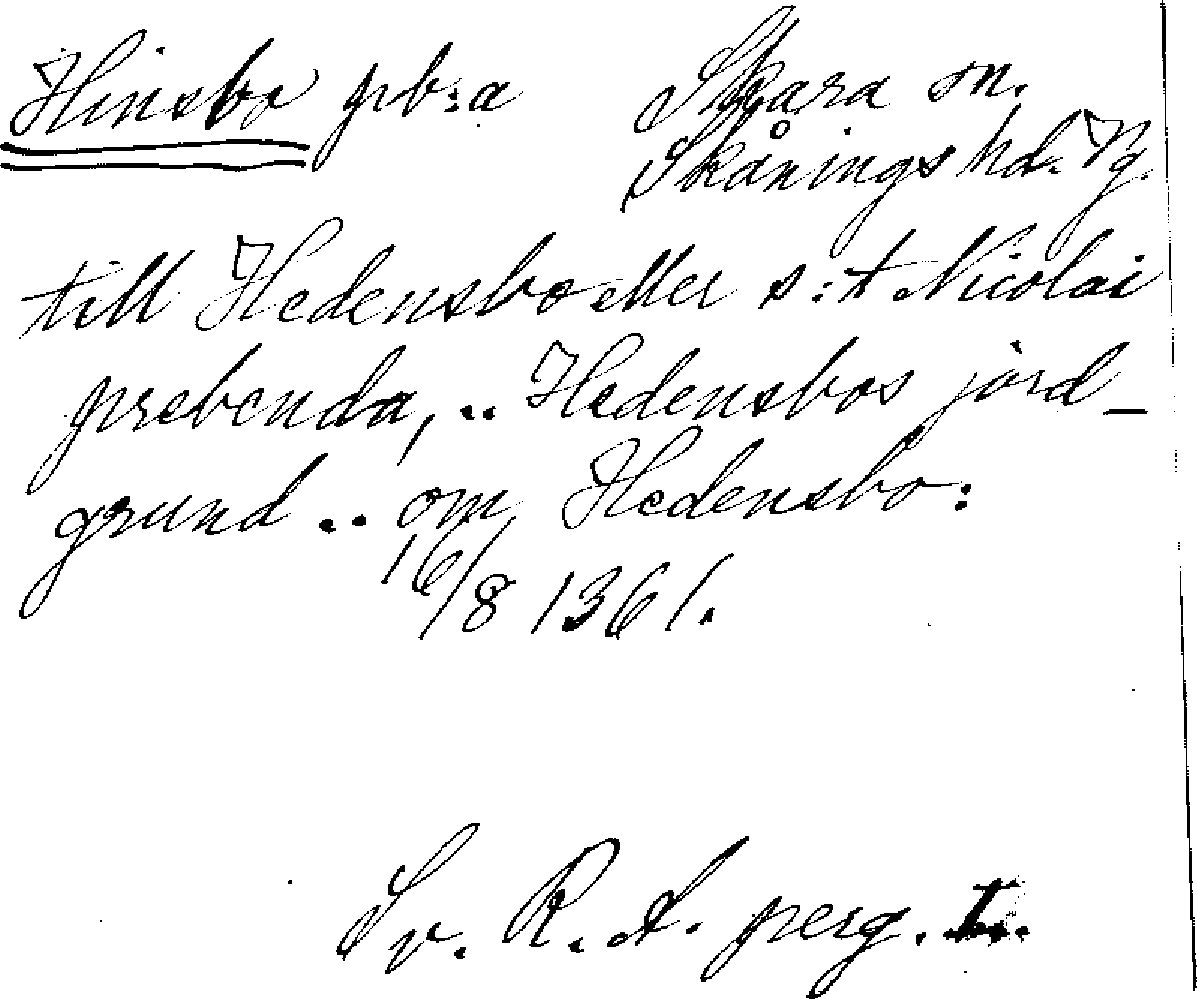 Hinsbo prb:a Skara sn.
Skånings hd. Vg.
till Hedensbo eller s:t Nicolai
prebenda, .. Hedensbos jord-
grund .. om Hedensbo:
16/8 1361.
Sv. R. A. perg.